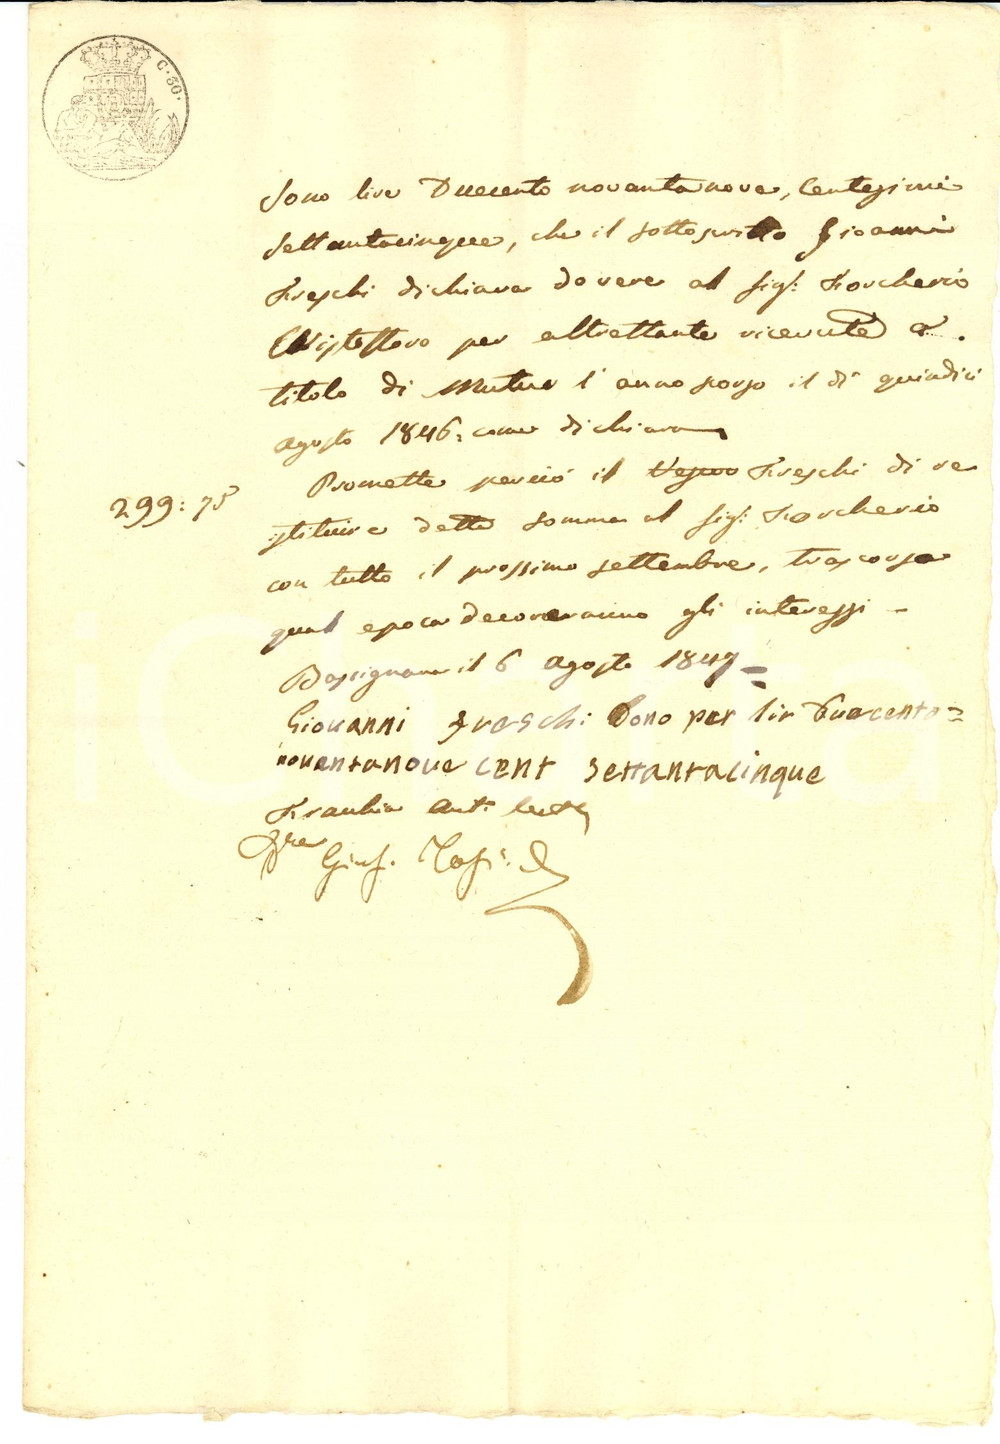 C. 30.
Sono lire Duecento novantanove, Centesimi
Settantacinque, che il sottoscritto Gioanni
Freschi dichiara dovere al Sig.r Forcherio
Cristofforo per altrettante ricevute a
titolo di Mutuo l'anno scorso il dì quindici
agosto 1846: come dichiara
Promette perciò il Freschi di re
299:75
stituire detta somma al Sig.r Forcherio
con tutto il prossimo settembre, trascorsa
qual epoca decorreranno gli interessi -
Bassignana il 6 Agosto 1847=
Giovanni freschi Sono per lir Duecento=
novantanove cent settantacinque
Ant.
Gius.